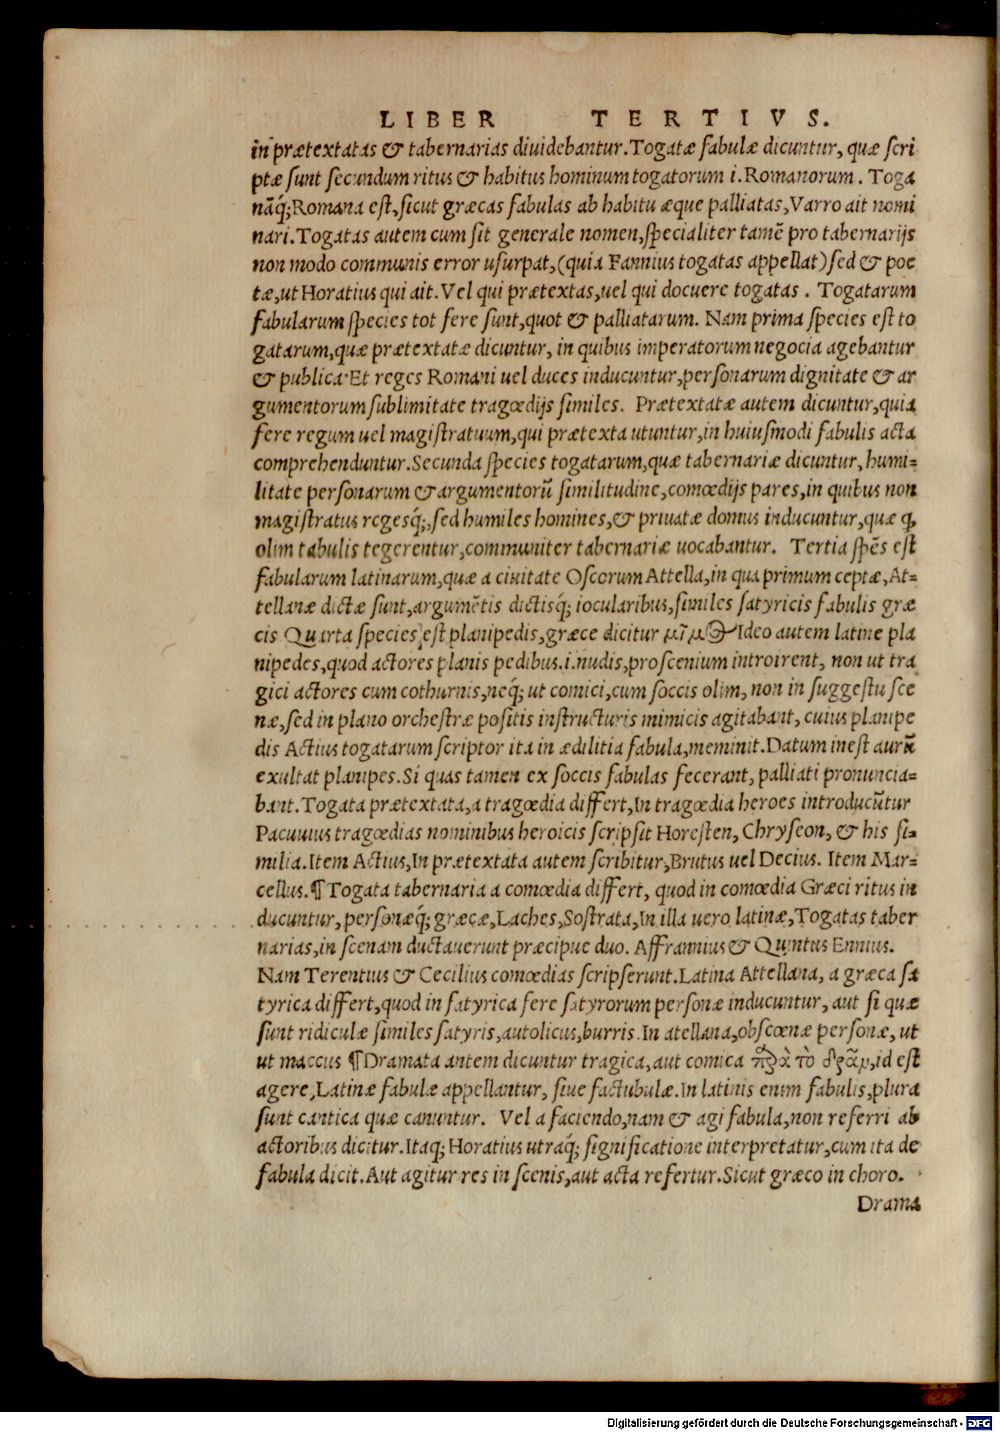 LIBER TERTIVS.
in prætextatas & tabernarias diuidebantur. Togatæ fabulæ dicuntur, quæ scri
ptæ sunt secundum ritus & habitus hominum togatorum i. Romanorum. Toga
nãq́; Romana est, sicut græcas fabulas ab habitu æque palliatas, Varro ait nomi
nari. Togatas autem cum sit generale nomen, specialiter tamẽ pro tabernarijs
non modo communis error usurpat, (quia Fannius togatas appellat) sed & poe
tæ, ut Horatius qui ait. Vel qui prætextas, uel qui docuere togatas. Togatarum
fabularum species tot fere sunt, quot & palliatarum. Nam prima species est to
gatarum, quæ prætextatæ dicuntur, in quibus imperatorum negocia agebantur
& publica. Et reges Romani uel duces inducuntur, personarum dignitate & ar
gumentorum sublimitate tragœdijs similes. Prætextatæ autem dicuntur, quia
fere regum uel magistratuum, qui prætexta utuntur, in huiusmodi fabulis acta
comprehenduntur. Secunda species togatarum, quæ tabernariæ dicuntur, humi=
litate personarum & argumentorũ similitudine, comœdijs pares, in quibus non
magistratus regesq́;, sed humiles homines, & priuatæ domus inducuntur, quæ q,
olim tabulis tegerentur, communiter tabernariæ uocabantur. Tertia spẽs est
fabularum latinarum, quæ a ciuitate Oscorum Attella, in qua primum ceptæ, At=
tellanæ dictæ sunt, argumẽtis dictisq́; iocularibus, similes satyricis fabulis græ
cis Quarta species est planipedis, græce dicitur μῖμος Ideo autem latine pla
nipedes, quod actores planis pedibus .i. nudis, proscenium introirent, non ut tra
gici actores cum cothurnis, neq́; ut comici, cum soccis olim, non in suggestu sce
næ, sed in plano orchestræ positis instructuris mimicis agitabant, cuius planipe
dis Actius togatarum scriptor ita in ædilitia fabula, meminit. Datum inest aurũ
exultat planipes. Si quas tamen ex soccis fabulas fecerant, palliati pronuncia=
bant. Togata prætextata, a tragœdia differt, In tragœdia heroes introducũtur
Pacuuius tragœdias nominibus heroicis scripsit Horesten, Chryseon, & his si=
milia. Item Actius, In prætextata autem scribitur, Brutus uel Decius. Item Mar=
cellus. ¶ Togata tabernaria a comœdia differt, quod in comœdia Græci ritus in
ducuntur, personæq́; græcæ, Laches, Sostrata, In illa uero latinæ, Togatas taber
narias, in scenam ductauerunt præcipue duo. Affrannius & Quintus Ennius.
Nam Terentius & Cecilius comœdias scripserunt. Latina Attellana, a græca sa
tyrica differt, quod in satyrica fere satyrorum personæ inducuntur, aut si quæ
sunt ridiculæ similes satyris, autolicus, burris. In atellana, obscœnæ personæ, ut
ut maccus ¶ Dramata antem dicuntur tragica, aut comica παρὰ τὸ δρᾶμ, id est
agere, Latinæ fabulæ appellantur, siue factubulæ. In latinis enim fabulis, plura
sunt cantica quæ canuntur. Vel a faciendo, nam & agi fabula, non referri ab
actoribus dicitur. Itaq; Horatius utraq́; significatione interpretatur, cum ita de
fabula dicit. Aut agitur res in scenis, aut acta refertur. Sicut græco in choro.
Drama
Digitalisierung gefördert durch die Deutsche Forschungsgemeinschaft - DFG